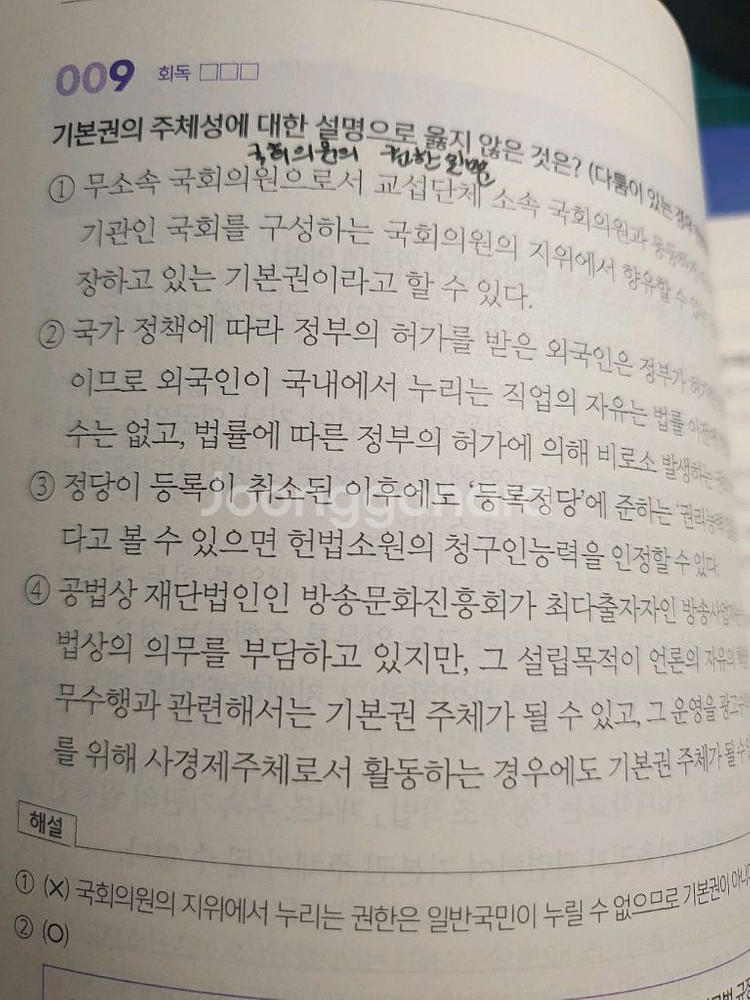 009 회독 □□□
기본권의 주체성에 대한 설명으로 옳지 않은 것은? (다툼이 있는 경우
국회의원의 권한일뿐
① 무소속 국회의원으로서 교섭단체 소속 국회의원과 동등하게
기관인 국회를 구성하는 국회의원의 지위에서 향유할 수 있는
장하고 있는 기본권이라고 할 수 있다.
② 국가 정책에 따라 정부의 허가를 받은 외국인은 정부가
이므로 외국인이 국내에서 누리는 직업의 자유는 법률
수는 없고, 법률에 따른 정부의 허가에 의해 비로소 발생하는
③ 정당이 등록이 취소된 이후에도 '등록정당'에 준하는
다고 볼 수 있으면 헌법소원의 청구인능력을 인정할 수 있다.
④ 공법상 재단법인인 방송문화진흥회가 최다출자자인 방송사업자는
법상의 의무를 부담하고 있지만, 그 설립목적이 언론의 자유의
무수행과 관련해서는 기본권 주체가 될 수 있고, 그 운영을
를 위해 사경제주체로서 활동하는 경우에도 기본권 주체가 될 수
해설
① (X) 국회의원의 지위에서 누리는 권한은 일반국민이 누릴 수 없으므로 기본권이
② (O)
Joonggonara